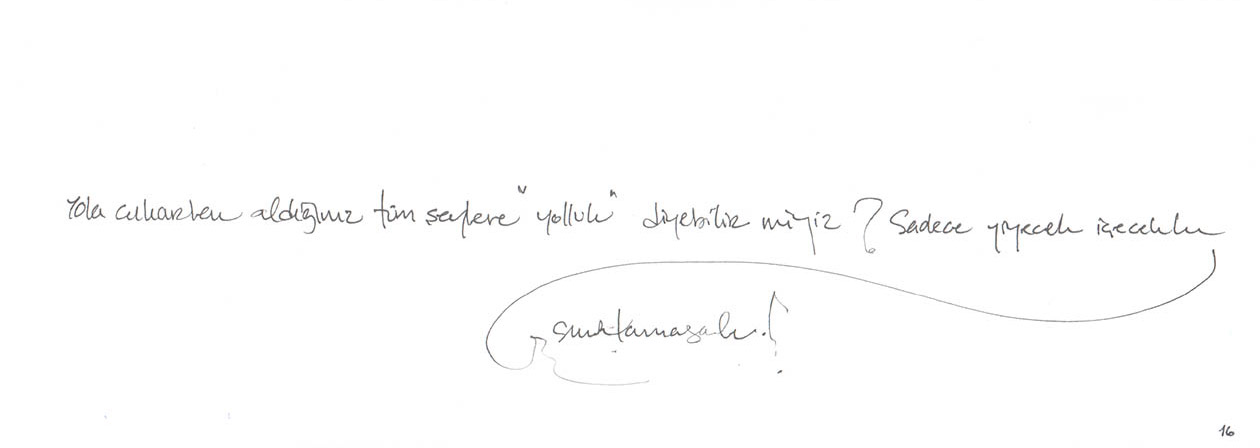 Yola çıkarken aldığımız tüm şeylere "yolluk" diyebilir miyiz? Sadece yiyecek içecekle
sınırlamasak.!
16